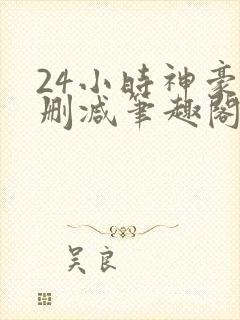 24小時神豪
删减筆趣閣
吴良